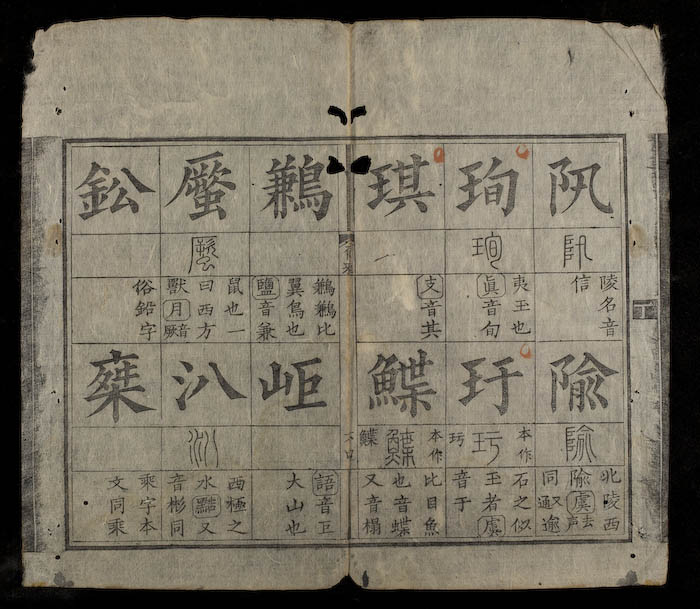 阠
陵名音
信
珣
夷玉也
眞音旬
琪
支音其
隃
北陵西
隃虞去声
又同通逾
玗
本作
石之似
玉者虞
音于
鰈
本作鰈
比目魚
也音蝶
又音榻
鶼
鶼鶼比
翼鳥也
鹽音兼
蟨
鼠也一
曰西方
獸月音厥
鈆
俗鉛字
岠
語音巨
大山也
汃
西極之
水黠又
音彬同
椉
乘字本
文同乘